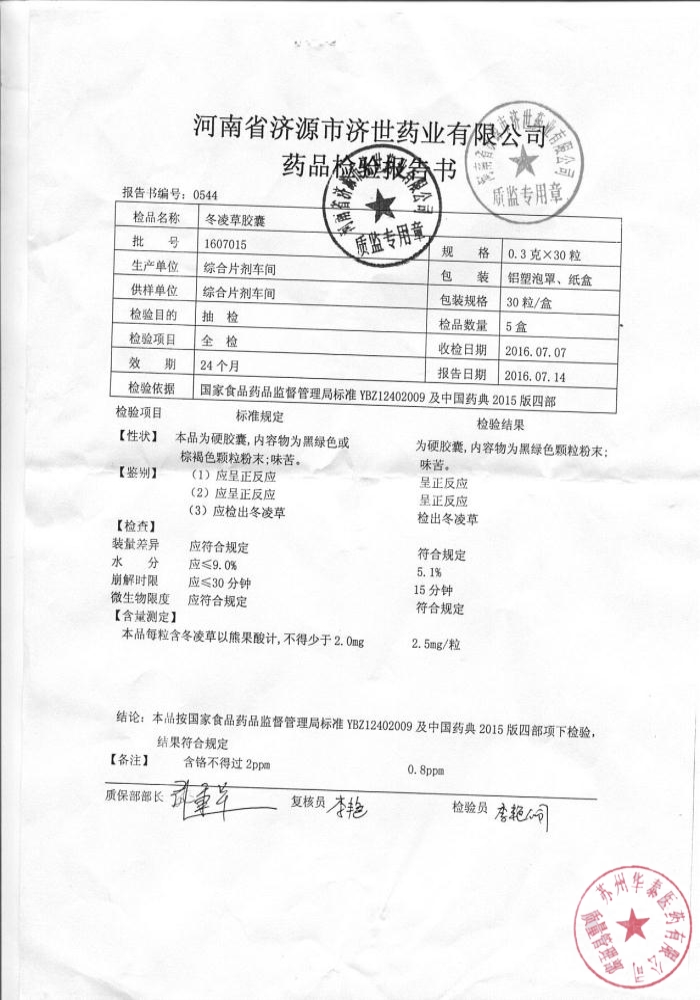 河南省济源市济世药业有限公司
药品检验报告书
报告书编号：0544
检品名称 冬凌草胶囊
批 号 1607015 规 格 0.3克×30粒
生产单位 综合片剂车间 包 装 铝塑泡罩、纸盒
供样单位 综合片剂车间 包装规格 30粒/盒
检验目的 抽 检 检品数量 5盒
检验项目 全 检 收检日期 2016.07.07
效 期 24个月 报告日期 2016.07.14
检验依据 国家食品药品监督管理局标准YBZ12402009及中国药典2015版四部
检验项目 标准规定 检验结果
【性状】 本品为硬胶囊,内容物为黑绿色或 为硬胶囊,内容物为黑绿色颗粒粉末;
棕褐色颗粒粉末;味苦。 味苦。
【鉴别】 （1）应呈正反应 呈正反应
（2）应呈正反应 呈正反应
（3）应检出冬凌草 检出冬凌草
【检查】
装量差异 应符合规定 符合规定
水 分 应≤9.0% 5.1%
崩解时限 应≤30分钟 15分钟
微生物限度 应符合规定 符合规定
【含量测定】
本品每粒含冬凌草以熊果酸计,不得少于2.0mg 2.5mg/粒
结论：本品按国家食品药品监督管理局标准YBZ12402009及中国药典2015版四部项下检验,
结果符合规定
【备注】 含铬不得过2ppm 0.8ppm
质保部部长 复核员 李艳 检验员
河南省济源市济世药业有限公司
质监专用章
河南省济源市济世药业有限公司
质监专用章
苏州华泰医药有限公司
质量管理部